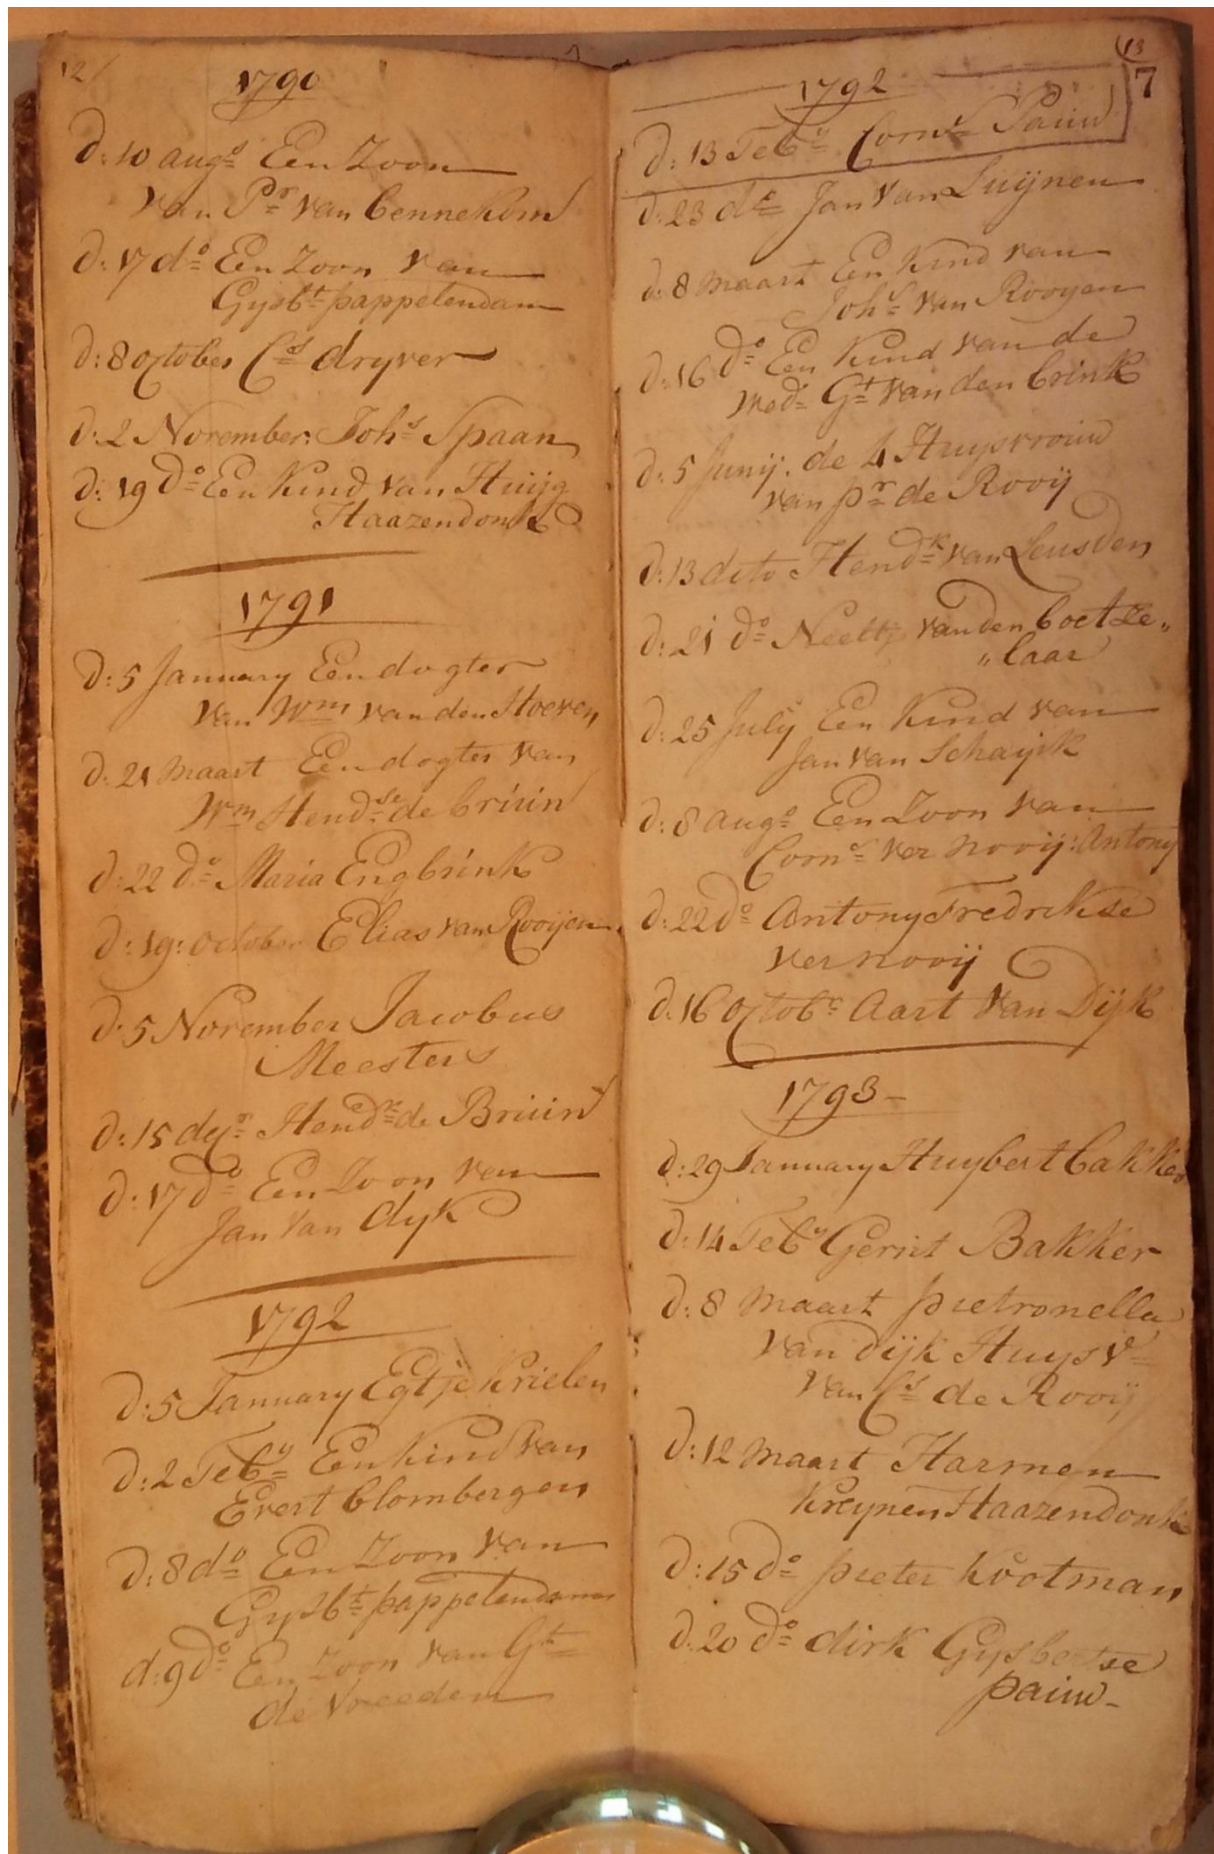 12
1790
d: 10 augs Een Zoon
van Pr van bennekom
d: 17 do Een Zoon van
Gysbt pappelendam
d: 8 October Cs dryver
d: 2 November: Johs Spaan
d: 19 do Een Kind van Huijg
Haazendonk
1791
d: 5 January Een dogter
van Wm van den Hoeven
d: 21 maart Een dogter van
Wm Hendse de bruin
d: 22 do Maria Engbrink
d: 19: October Elias van Rooijen
d: 5 November Jacobus
Meesters
d: 15 decr Hendk de Bruin
d: 17 do Een Zoon van
Jan van dyk
1792
d: 5 January Egtje Krielen
d: 2 Feby Een Kind van
Evert blombergen
d: 8 do Een Zoon van
Gysbt pappelendam
d: 9 do Een Zoon van Gt
de Vreeden
13
7
1792
d: 13 Feby Corns Pauw
d: 23 do Jan van Luijnen
d: 8 maart Een Kind van
Johs van Rooyen
d: 16 do Een Kind van de
Wed Gt van den brink
d: 5 Junij. de 4 Huysvrouw
van pr de Rooij
d: 13 dito Hendk van Leusden
d: 21 do Neeltj van den boetze„
„laar
d: 25 July Een Kind van
Jan van Schayik
d: 8 augs Een Zoon van
Corns ver nooij: Antony
d: 22 do Antony Fredrikse
vernooij
d: 16 Octobr Aart Van Dijk
1793
d: 29 January Huybert bakker
d: 14 Feby Gerrit Bakker
d: 8 maart pietronella
van Dijk Huysv
van Cs de Rooij
d: 12 maart Harmen
Kreynen Haazendonk
d: 15 do pieter Kootman
d: 20 do dirk Gysbertse
pauw